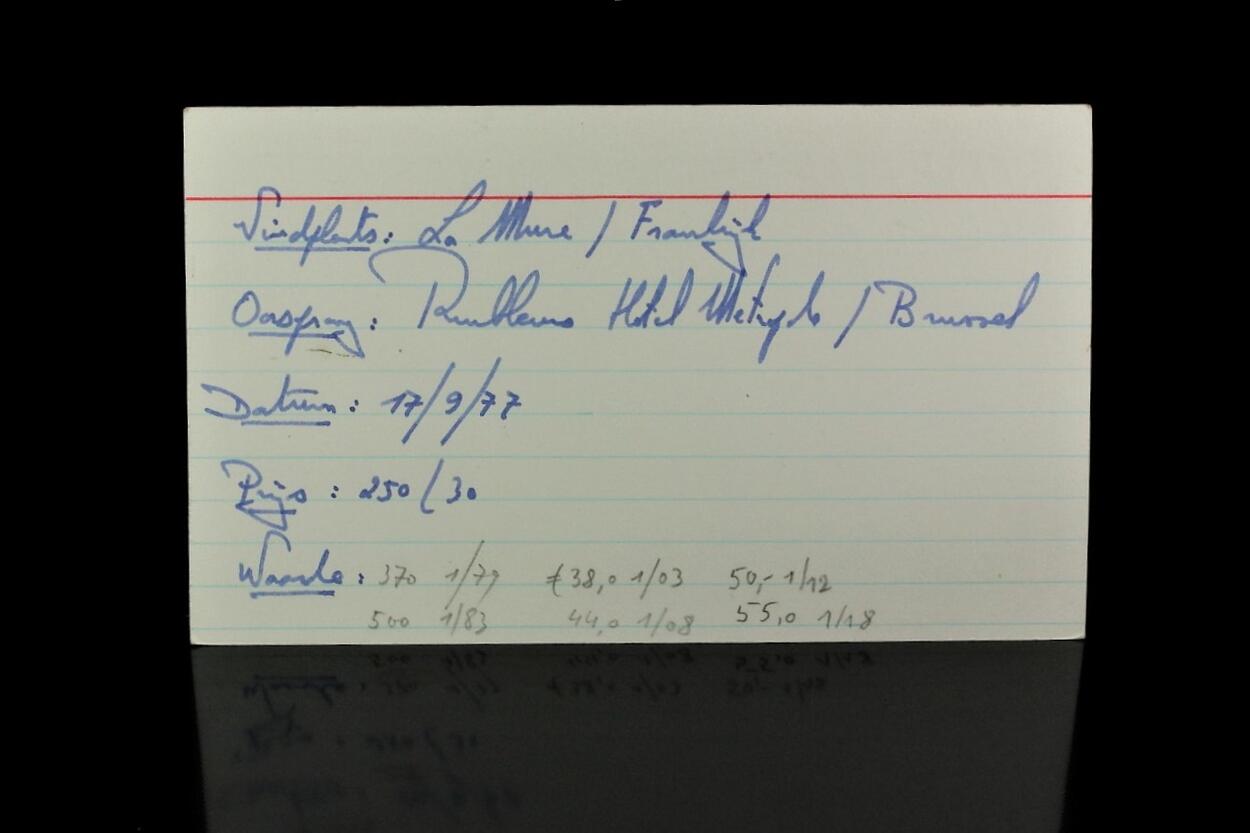 Vindplaats: La Mure / Frankrijk
Oorsprong: Hotel Metropole / Brussel
Datum: 17/9/77
Prijs: 250/30
Waarde: 370 1/79 €38,0 1/03 50,- 1/12
500 1/83 44,0 1/08 55,0 1/18